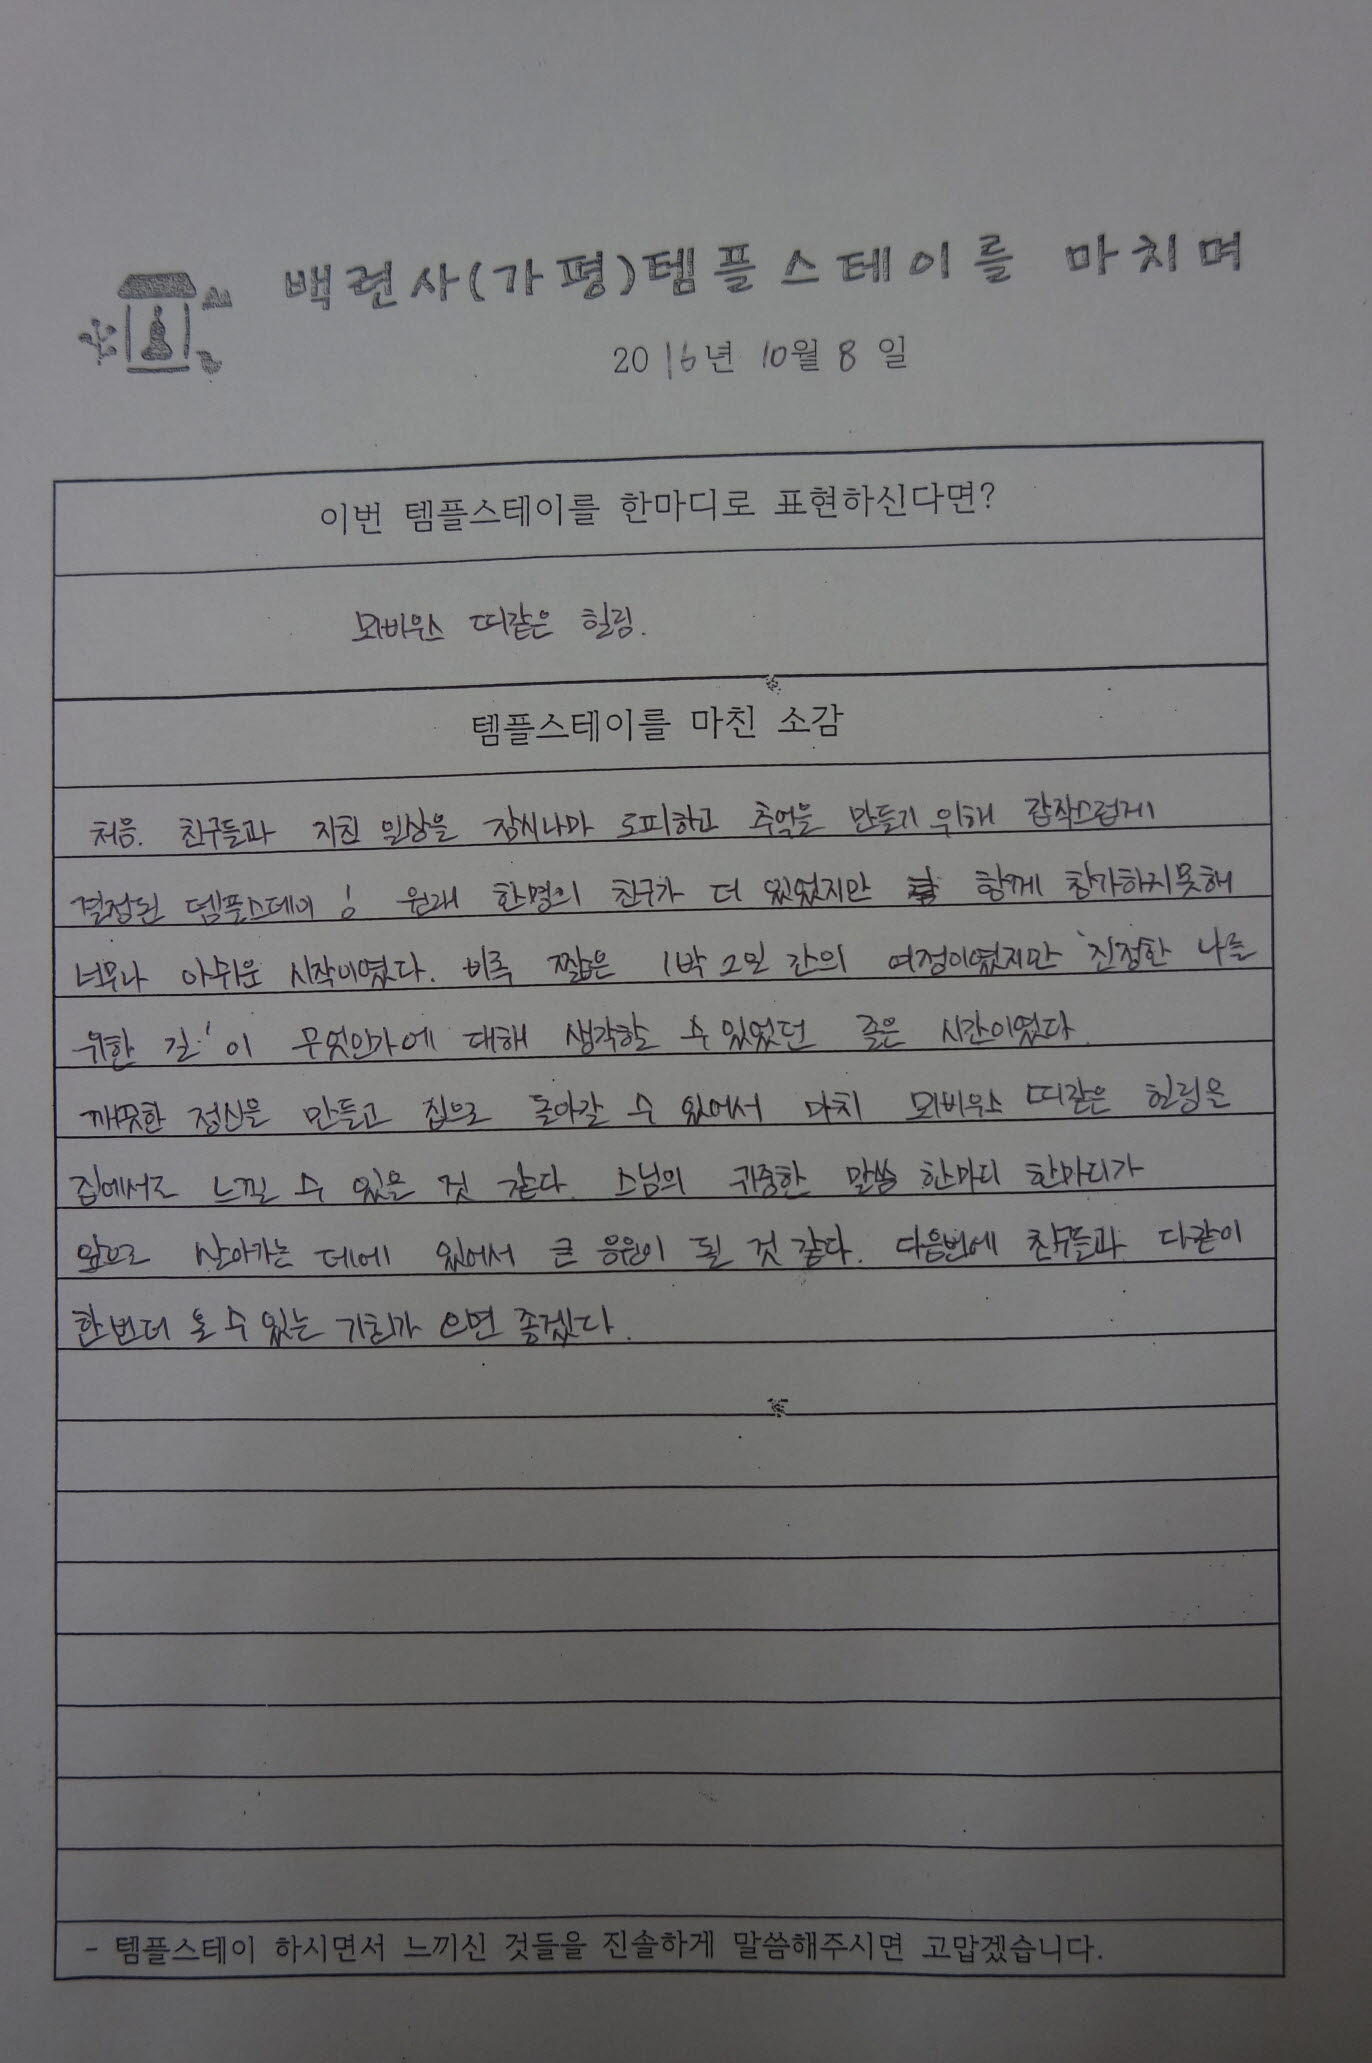 백련사(가평)템플스테이를 마치며
2016년 10월 8일
이번 템플스테이를 한마디로 표현하신다면?
뫼비우스 띠같은 힐링.
템플스테이를 마친 소감
처음. 친구들과 지친 일상을 잠시나마 도피하고 추억을 만들기 위해 갑작스럽게
결정된 템플스테이! 원래 한명의 친구가 더 있었지만 함께 참가하지못해
너무나 아쉬운 시작이였다. 비록 짧은 1박 2일 간의 여정이였지만 '진정한 나를
위한 길'이 무엇인가에 대해 생각할 수 있었던 좋은 시간이였다.
깨끗한 정신을 만들고 집으로 돌아갈 수 있어서 마치 뫼비우스 띠같은 힐링은
집에서도 느낄 수 있을 것 같다. 스님의 귀중한 말씀 한마디 한마디가
앞으로 살아가는 데에 있어서 큰 응원이 될 것 같다. 다음번에 친구들과 다같이
한번더 올 수 있는 기회가 으면 좋겠다.
- 템플스테이 하시면서 느끼신 것들을 진솔하게 말씀해주시면 고맙겠습니다.